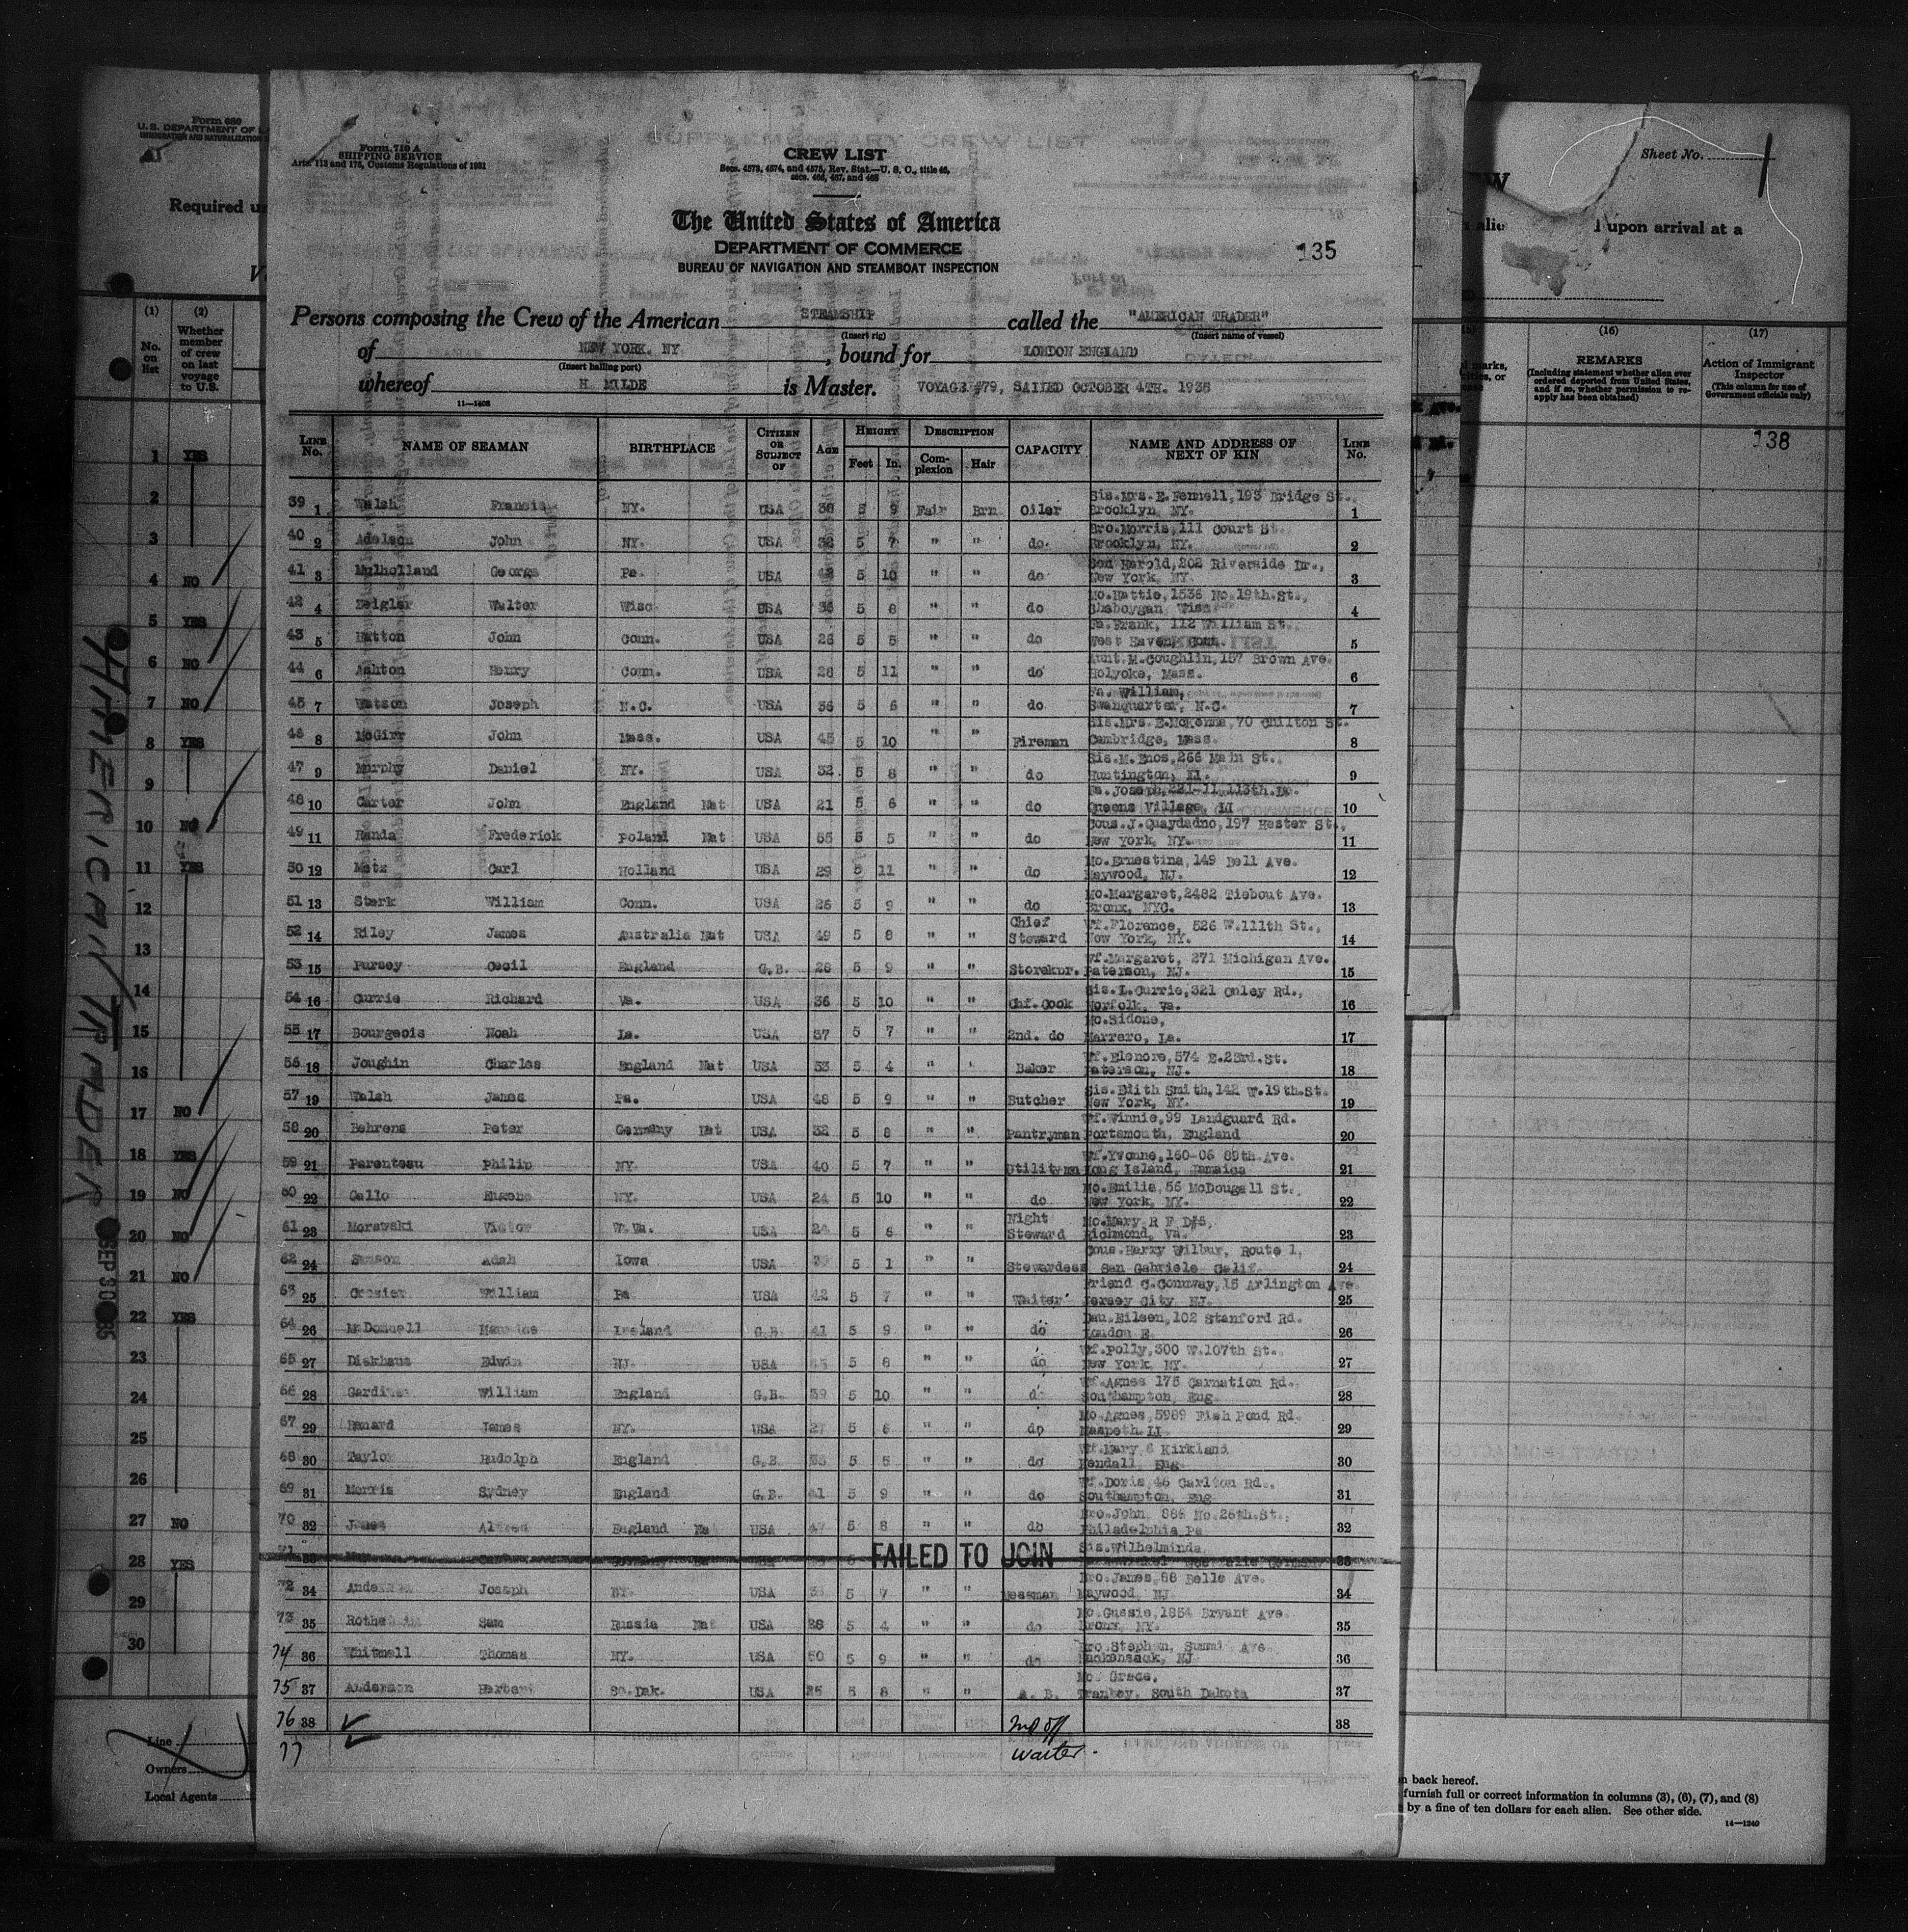 Form 710 A
SHIPPING SERVICE
Arts. 113 and 175, Customs Regulations of 1931
CREW LIST
Secs. 4573, 4574, and 4575, Rev. Stat.—U. S. C., title 46,
secs. 466, 467, and 468
The United States of America
DEPARTMENT OF COMMERCE
BUREAU OF NAVIGATION AND STEAMBOAT INSPECTION
135
Persons composing the Crew of the American STEAMSHIP called the "AMERICAN TRADER"
(Insert rig) (Insert name of vessel)
of NEW YORK. NY , bound for LONDON ENGLAND
(Insert hailing port)
whereof H. MILDE is Master. VOYAGE #79, SAILED OCTOBER 4TH. 1935
LINE No. NAME OF SEAMAN BIRTHPLACE CITIZEN OR SUBJECT OF AGE HEIGHT Feet In. DESCRIPTION Complexion Hair CAPACITY NAME AND ADDRESS OF NEXT OF KIN LINE No.
39 1 Walsh Francis NY. USA 5 9 Fair Brn Oiler Sis.Mrs.E.Fennell,193 Bridge St., Brooklyn, NY. 1
40 2 Adelson John NY. USA 5 7 " " do. Bro.Morris,111 Court St. Brooklyn, NY. 2
41 3 Mulholland George Pa. USA 5 10 " " do Son Harold,202 Riverside Dr., New York, NY. 3
42 4 Zeigler Walter Wisc USA 5 8 " " do Mo.Hattie,1536 No.19th.St., Sheboygan, Wisc. 4
43 5 Hatton John Conn. USA 26 5 5 " " do Fa.Frank, 112 William St. West Haven, Conn. 5
44 6 Ashton Henry Conn. USA 28 5 11 " " do Aunt.M.Coughlin,157 Brown Ave. Holyoke, Mass. 6
45 7 Watson Joseph N.C. USA 36 5 6 " " do Fa. William, Swanquarter, N.C. 7
46 8 McGirr John Mass. USA 45 5 10 " " Fireman Sis.Mrs.E.McKenna,70 Chilton St. Cambridge, Mass. 8
47 9 Murphy Daniel NY. USA 32 5 8 " " do Sis.M.Enos,266 Main St., Huntington, LI. 9
48 10 Carter John England Nat USA 21 5 6 " " do Fa.Joseph,221-11 113th. Queens Village, LI 10
49 11 Randa Frederick Poland Nat USA 5 5 " " do Cous.J.Quaydadno,197 Hester St., New York, NY. 11
50 12 Metz Carl Holland USA 29 5 11 " " do Mo.Ernestina,149 Bell Ave. Maywood, NJ. 12
51 13 Stark William Conn. USA 26 5 9 " " do Mo.Margaret,2482 Tiebout Ave. Bronx, NYC. 13
52 14 Riley James Australia Nat USA 49 5 8 " " Chief Steward Wf.Florence, 526 W.111th St., New York, NY. 14
53 15 Pursey Cecil England G.B. 28 5 9 " " Storekpr. Wf.Margaret, 271 Michigan Ave. Paterson, NJ. 15
54 16 Currie Richard Va. USA 36 5 10 " " Chf.Cook Sis.L.Currie,321 Onley Rd., Norfolk, Va. 16
55 17 Bourgeois Noah La. USA 37 5 7 " " 2nd. do Mo.Sidone, Marrero, La. 17
56 18 Joughin Charles England Nat USA 53 5 4 " " Baker Wf.Elenore,574 E.23rd.St. Paterson, NJ. 18
57 19 Walsh James Pa. USA 48 5 9 " " Butcher Sis.Edith Smith,142 W.19th.St. New York, NY. 19
58 20 Behrens Peter Germany Nat USA 32 5 8 " " Pantryman Wf.Winnie,99 Landguard Rd. Portsmouth, England 20
59 21 Parenteau Philip NY USA 40 5 7 " " Utilitymn Wf.Yvonne,160-06 89th.Ave. Long Island, Jamaica 21
60 22 Gallo Eugene NY. USA 24 5 10 " " do Mo.Emilia,56 McDougall St., New York, NY. 22
61 23 Morawski Victor W.Va. USA 24 5 6 " " Night Steward Mo.Mary R F D#5, Richmond, Va. 23
62 24 Adah Iowa USA 5 1 " " Stewardess Cous.Harry Wilbur, Route 1, San Gabriele Calif. 24
63 25 Crosier William Pa USA 42 5 7 " " Waiter Friend C.Connway,15 Arlington Ave. Jersey City, NJ. 25
64 26 McDonnell Ireland G.B. 41 5 9 " " do Dau.Eilsen,102 Stanford Rd. London E. 26
65 27 Diskhaus Edwin NJ. USA 5 8 " " do Wf.Polly,300 W.107th St., New York, NY. 27
66 28 Gardiner William England G.B. 39 5 10 " " do Wf.Agnes 175 Carnation Rd. Southampton, Eng. 28
67 29 James NY. USA 27 5 6 " " do Mo.Agnes,5989 Fish Pond Rd. Maspeth LI 29
68 30 Taylor Rudolph England G.B. 5 5 " " do Wf.Mary 6 Kirkland Kendall, Eng. 30
69 31 Morris Sydney England G.B. 41 5 9 " " do Wf.Doris 46 Carlton Rd., Southampton, Eng 31
70 32 Jones Alfred England USA 47 5 8 " " do Bro.John, 886 No.26th.St., Philadelphia Pa 32
71 33 FAILED TO JOIN Sis.Wilhelminda 33
72 34 Joseph NY. USA 5 7 " " Messman Bro.James,88 Belle Ave. Maywood, NJ 34
73 35 Sam Russia Nat USA 28 5 4 " " do Mo.Gussie,1854 Bryant Ave. Bronx, NY. 35
74 36 Whitwell Thomas NY. USA 50 5 9 " " do Bro.Stephen, Ave Hackensack, NJ 36
75 37 Anderson Herbert So.Dak. USA 25 5 8 " " A. B. Mo. Grace, South Dakota 37
76 38 2nd off 38
77 waiter.
11—1408
Form 680
U.S. DEPARTMENT OF
Required
(1) (2)
No. on list
Whether member of crew on last voyage to U.S.
1 YES
2
3
4 NO
5 YES
6 NO
7 NO
8 YES
9
10 NO
11 YES
12
13
14
15
16
17 NO
18 YES
19 NO
20 NO
21 NO
22 YES
23
24
25
26
27 NO
28 YES
29
30
Line
Owners
Local Agents
AMERICAN TRADER
SEP 30
Sheet No. 1
upon arrival at a
(16) (17)
REMARKS
(Including statement whether alien ever ordered deported from United States, and if so, whether permission to reapply has been obtained)
Action of Immigrant Inspector
(This column for use of Government officials only)
138
back hereof.
furnish full or correct information in columns (3), (6), (7), and (8)
by a fine of ten dollars for each alien. See other side.
14—1240